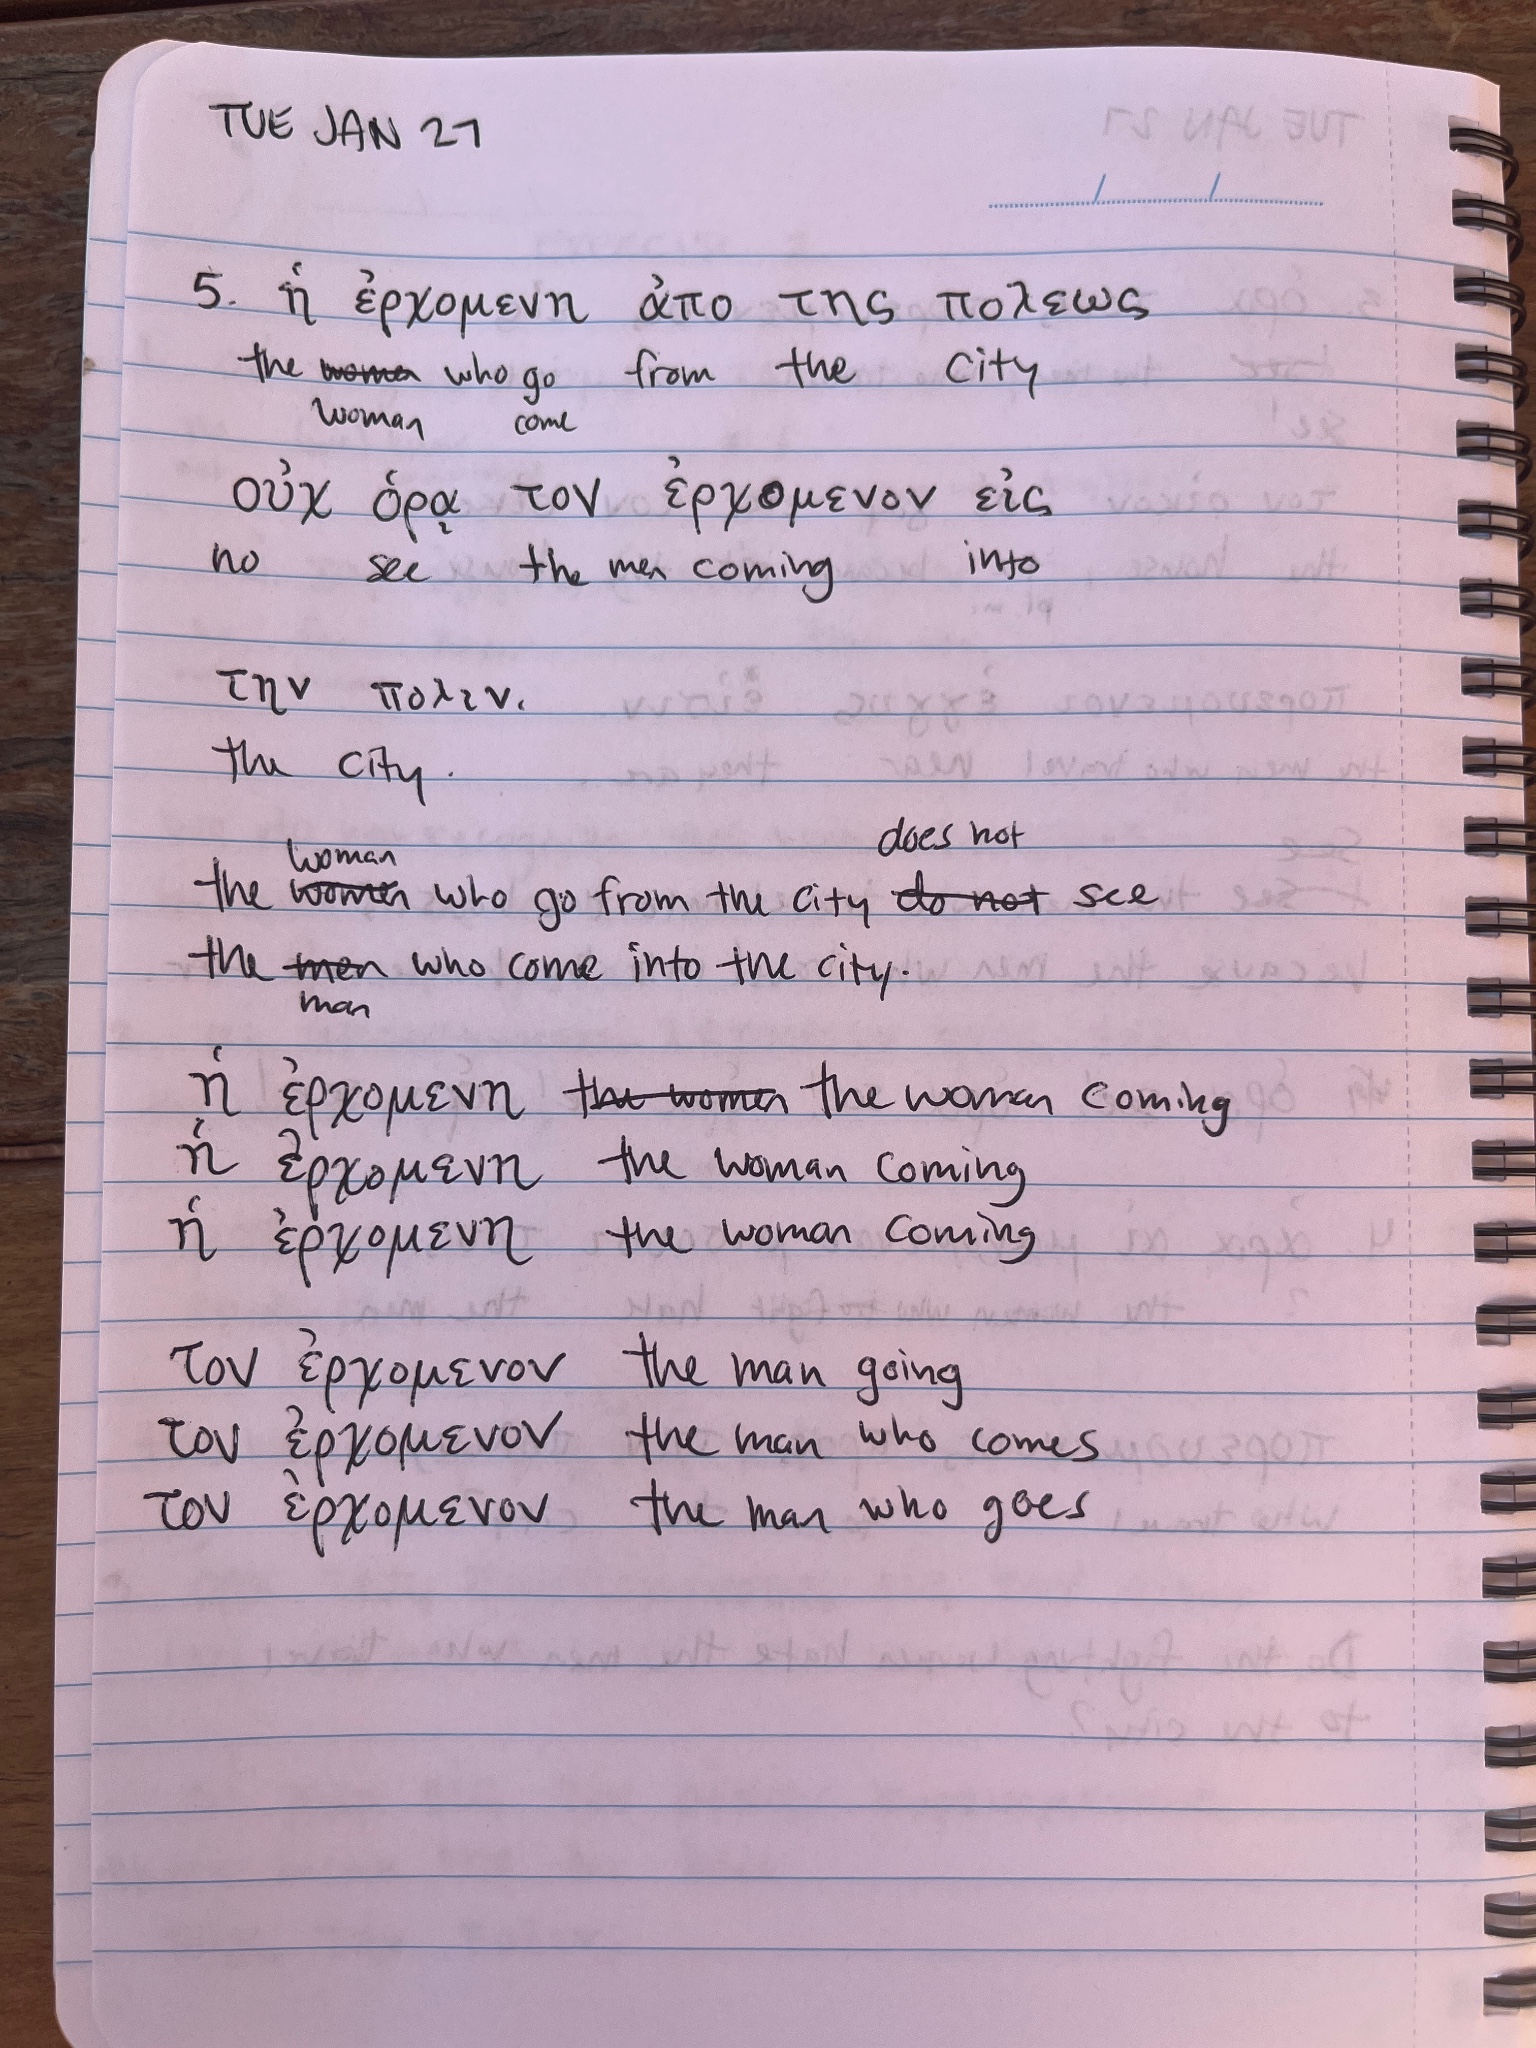 TUE JAN 27
5. ἡ ἐρχομενη ἀπο της πολεως
the women who go from the city
woman come
οὐχ ὁρᾳ τον ἐρχομενον εἰς
no see the men coming into
την πολιν.
the city.
woman does not
the women who go from the city do not see
the men who come into the city.
man
ἡ ἐρχομενη the women the woman coming
ἡ ἐρχομενη the woman coming
ἡ ἐρχομενη the woman coming
τον ἐρχομενον the man going
τον ἐρχομενον the man who comes
τον ἐρχομενον the man who goes